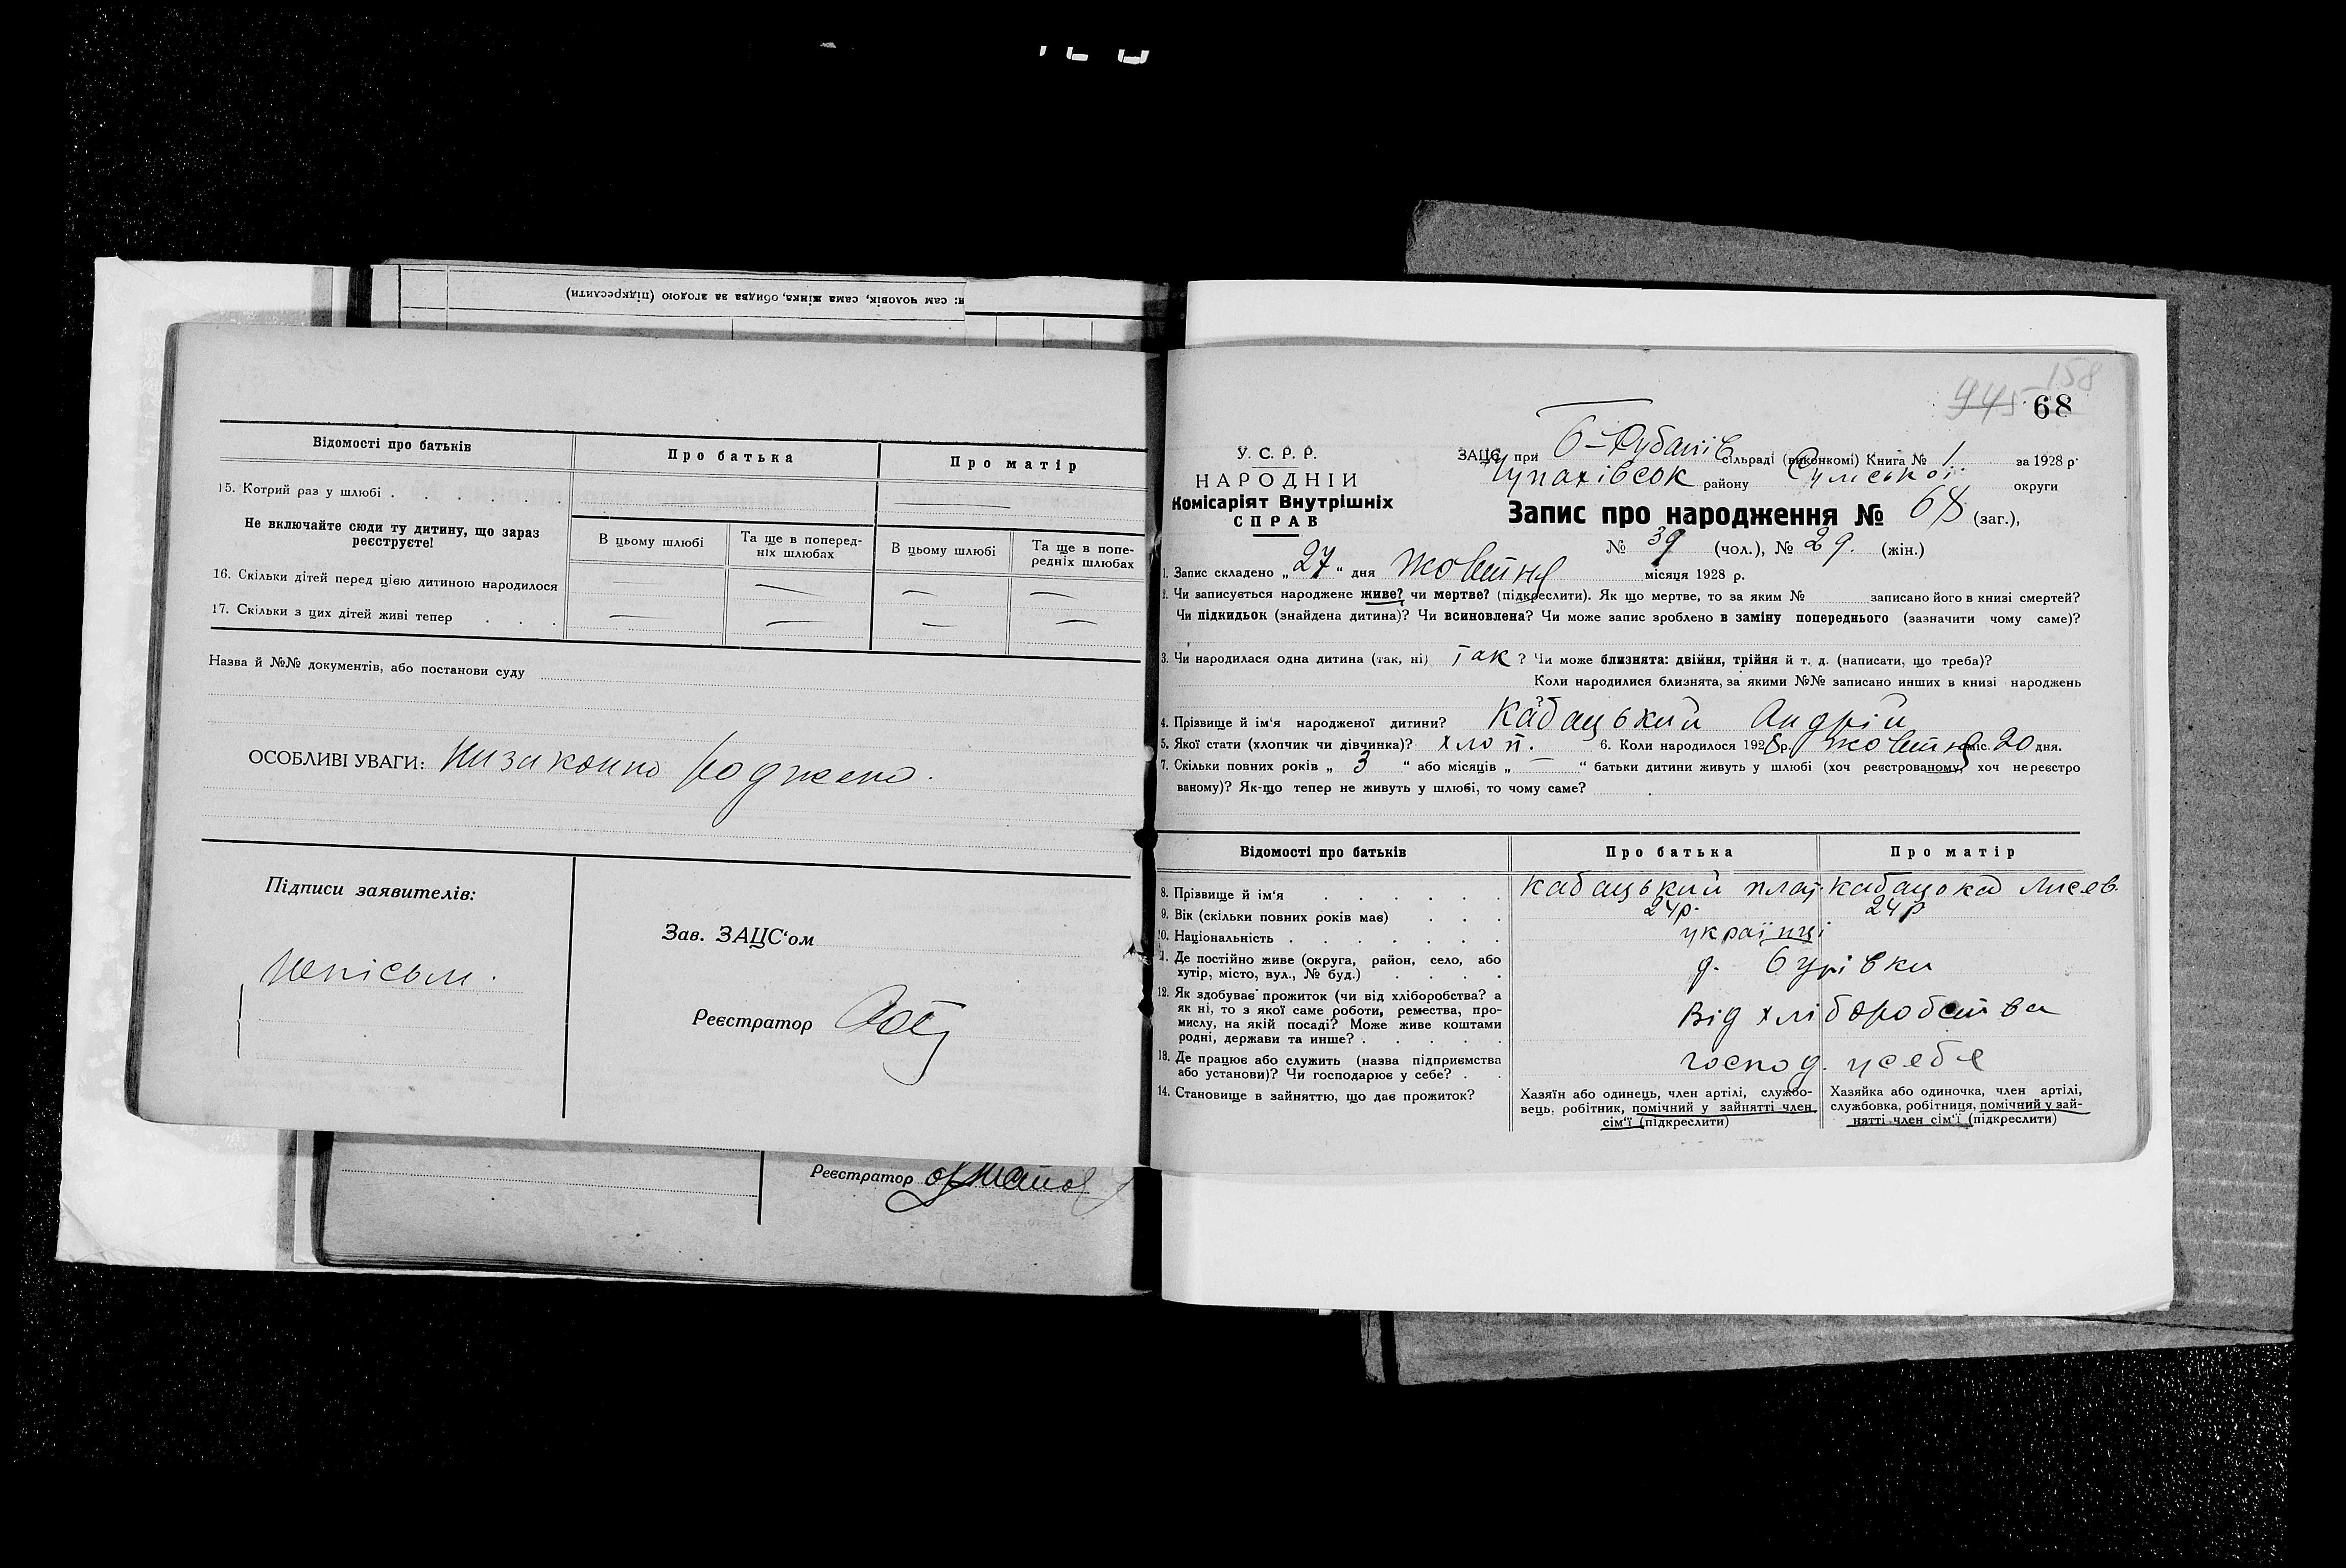 и: сам чоловік, сама жінка, обидва за згодою (підкреслити)
Відомості про батьків
Про батька
Про матір
15. Котрий раз у шлюбі . . . . . .
Не включайте сюди ту дитину, що зараз
реєструєте!
В цьому шлюбі
Та ще в поперед-
ніх шлюбах
В цьому шлюбі
Та ще в попе-
редніх шлюбах
16. Скільки дітей перед цією дитиною народилося
17. Скільки з цих дітей живі тепер . . .
Назва й №№ документів, або постанови суду
ОСОБЛИВІ УВАГИ:
Підписи заявителів:
Зав. ЗАЦС'ом
Непісьм.
Реєстратор
Реєстратор
158
68
У. С. Р. Р.
НАРОДНІЙ
Комісаріят Внутрішніх
СПРАВ
ЗАЦС при сільраді (виконкомі) Книга № 1 за 1928 р.
Чупахівсок району Сумської округи
Запис про народження № 68 (заг.),
№ 39 (чол.), № 29. (жін.)
1. Запис складено „27“ дня жовтня місяця 1928 р.
2. Чи записується народжене живе? чи мертве? (підкреслити). Як що мертве, то за яким № записано його в книзі смертей?
Чи підкидьок (знайдена дитина)? Чи всиновлена? Чи може запис зроблено в заміну попереднього (зазначити чому саме)?
3. Чи народилася одна дитина (так, ні) Так ? Чи може близнята: двійня, трійня й т. д. (написати, що треба)?
Коли народилися близнята, за якими №№ записано инших в книзі народжень
4. Прізвище й ім'я народженої дитини? Кабацький Андрій
5. Якої стати (хлопчик чи дівчинка)? хлоп. 6. Коли народилося 1928 р. жовтня міс. 20 дня.
7. Скільки повних років „ 3 “ або місяців „ — “ батьки дитини живуть у шлюбі (хоч реєстрованому, хоч нереєстро
ваному)? Як-що тепер не живуть у шлюбі, то чому саме?
Відомості про батьків
Про батька
Про матір
8. Прізвище й ім'я . . . . . .
Кабацький
Кабацька
9. Вік (скільки повних років має) . . .
24р.
24р
10. Національність . . . . . . .
українці
11. Де постійно живе (округа, район, село, або
хутір, місто, вул., № буд.) . . . .
12. Як здобуває прожиток (чи від хліборобства? а
як ні, то з якої саме роботи, ремества, про-
мислу, на якій посаді? Може живе коштами
родні, держави та инше? . . . . .
Від хліборобства
13. Де працює або служить (назва підприємства
або установи)? Чи господарює у себе? . .
господ. у себе
14. Становище в зайняттю, що дає прожиток?
Хазяїн або одинець, член артілі, службо-
вець, робітник, помічний у зайнятті член
сім'ї (підкреслити)
Хазяйка або одиночка, член артілі,
службовка, робітниця, помічний у зай-
нятті член сім'ї (підкреслити)